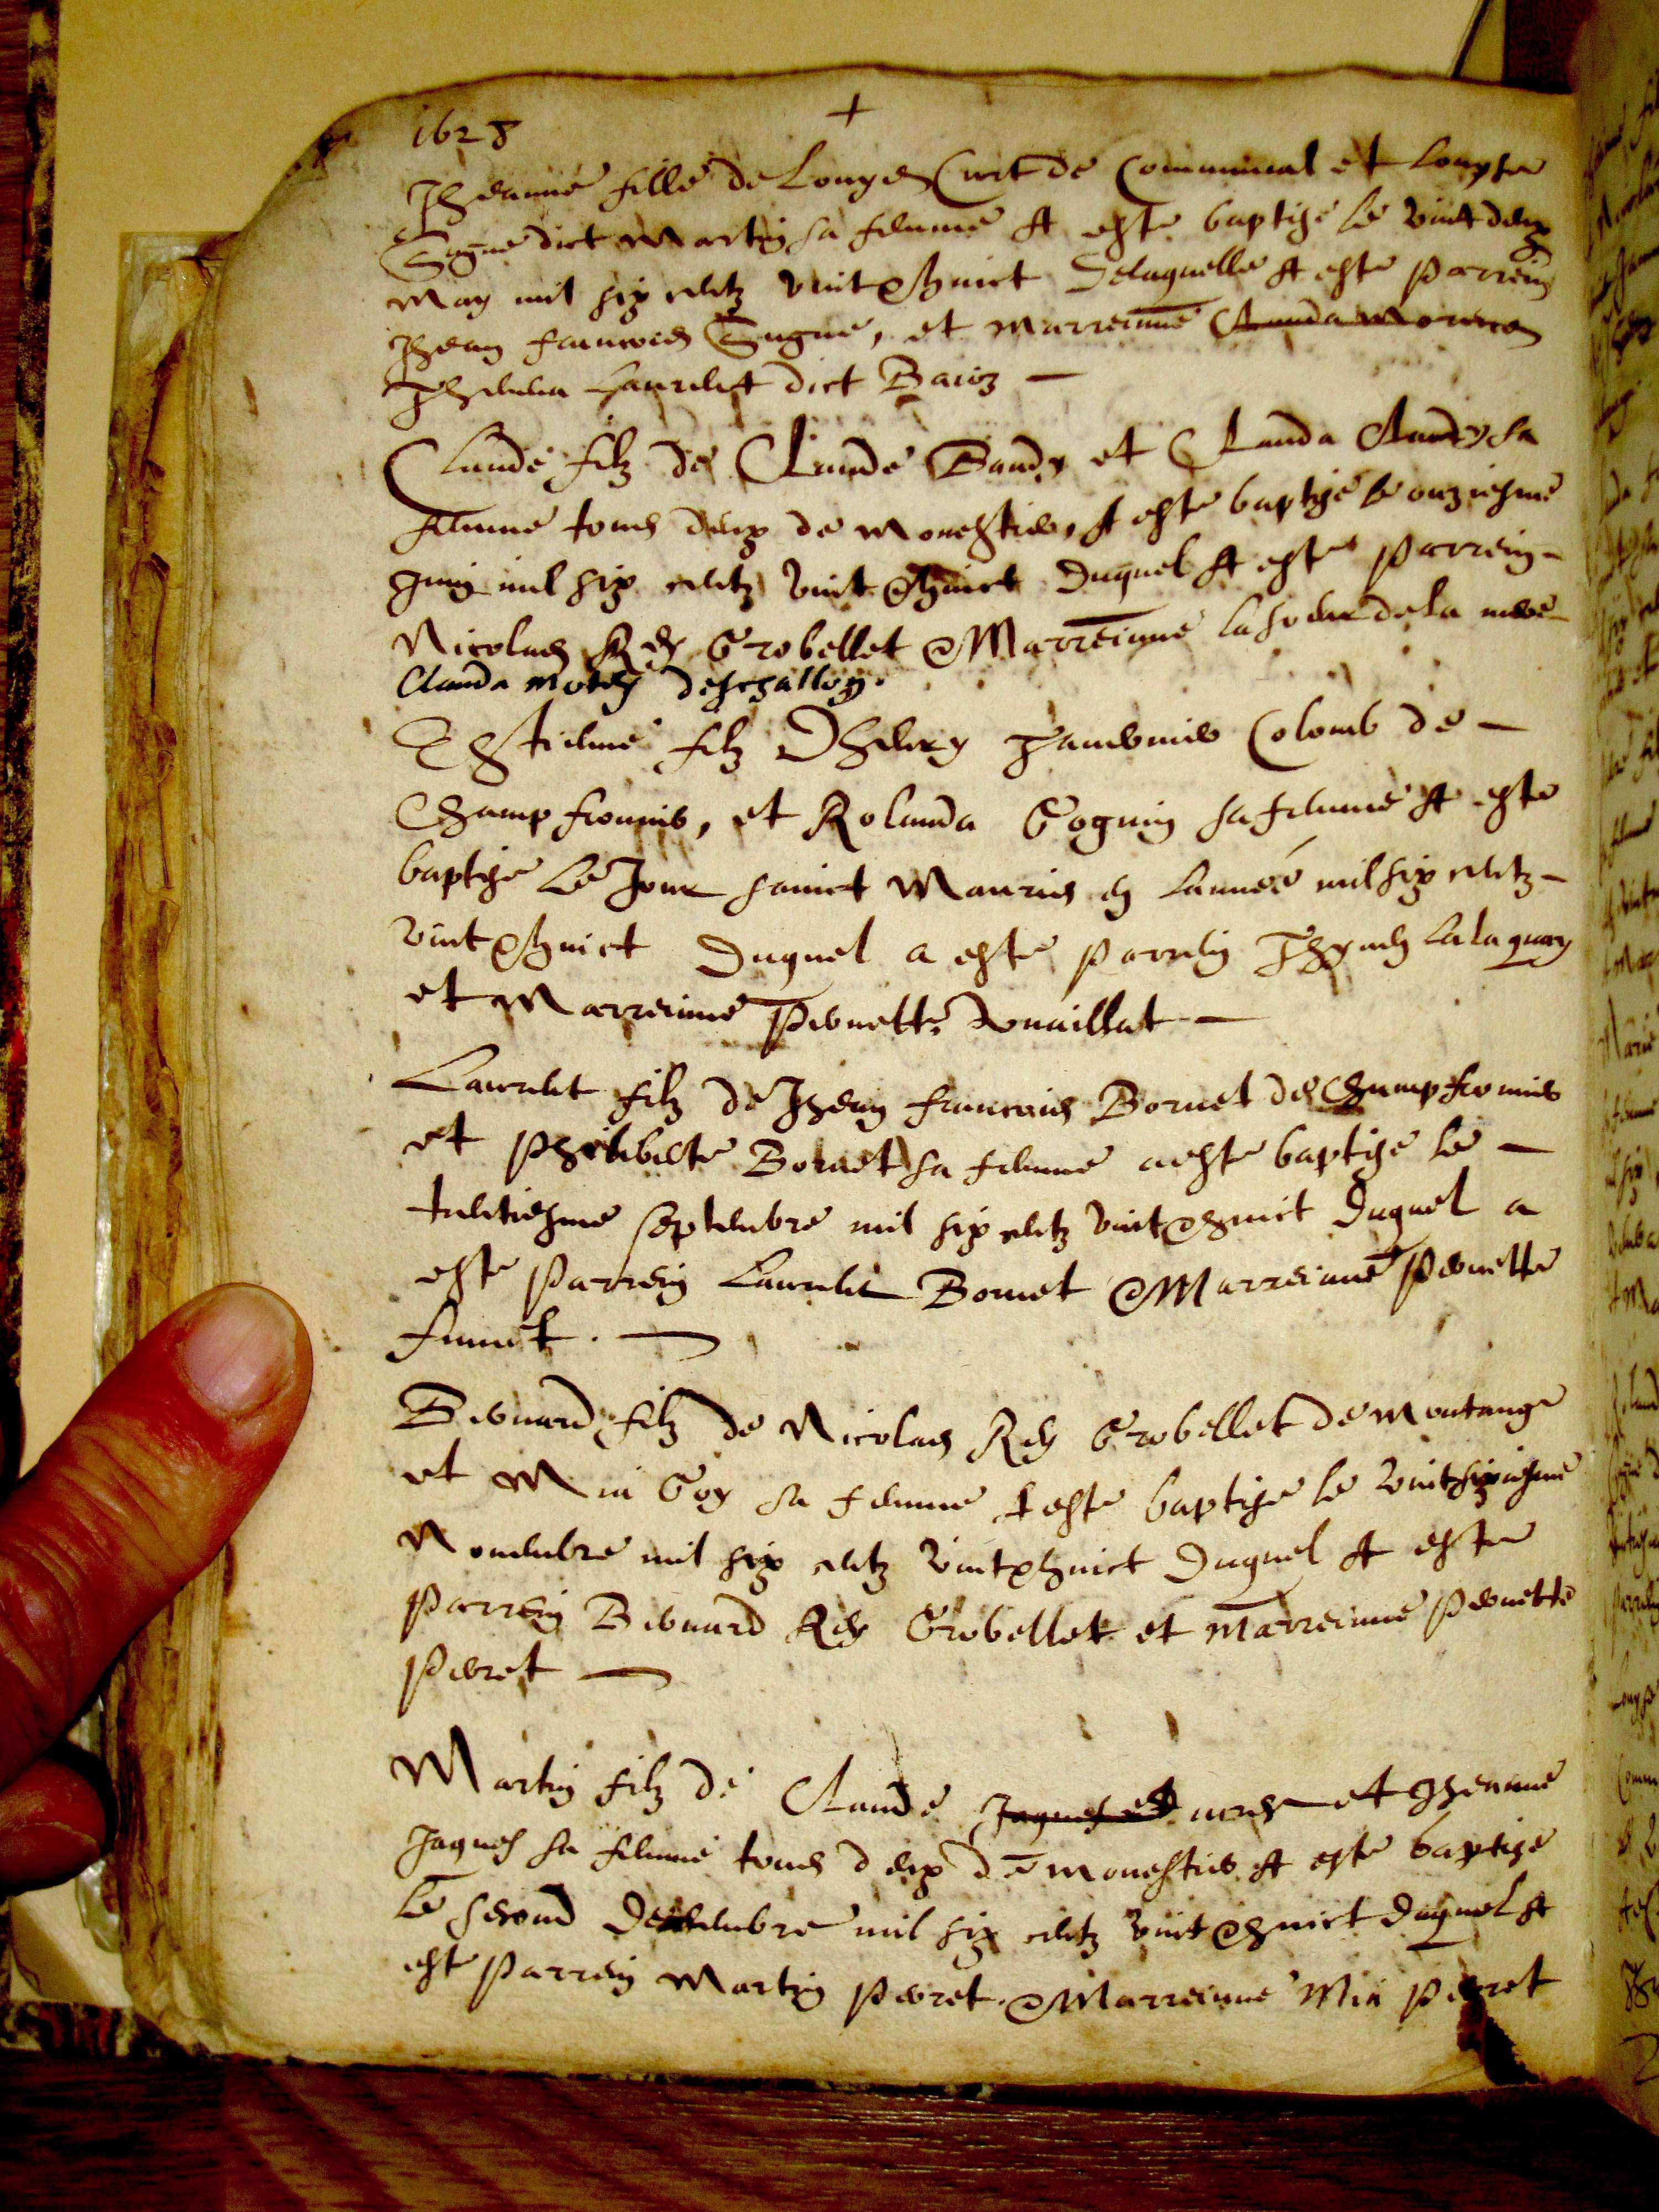 1628 +
Jheanne fille de Louys Curt de Communal et Louyse
Sugne dict Martin sa femme A este baptise le vint deux
May mil six centz vint & huict Delaquelle A este parrein
Jhean francois Sugne, et marreinne Clauda
laurent dict
Claude filz de Claude Baudy et Clauda Claudy sa
femme tous deux de monestier, A este baptise le onziesme
Juin mil six centz vint & huict Duquel A este parrein
Nicolas Rey Grobellet & Marreinne la soeur de la mere
Clauda deschallon.
Estienne filz Thevenin Colomb de
Champfromier, et Rolanda Goguin sa femme A este
baptise le Jour sainct Mauris en lannee mil six centz
vint & huict Duquel a este parrein
et Marreinne pernette
Laurent filz de Jhean francois Bornet de Champfromier
et philiberte Bornet sa femme a este baptise le
trentiesme septembre mil six centz vint & huict Duquel a
este parrein Laurent Bornet & Marreinne pernette
Bernard filz de Nicolas Rey Grobellet de montange
et Mia Goy sa femme A este baptise le vintsixiesme
Novembre mil six centz vint & huict Duquel A este
parrein Bernard Rey Grobellet et marreinne pernette
perret
Martin filz de Claude Jaques et et Jheanne
Jaques sa femme tous deux de monestier A este baptise
le second decembre mil six centz vint & huict duquel A
este parrein Martin perret & Marreinne Mia perret